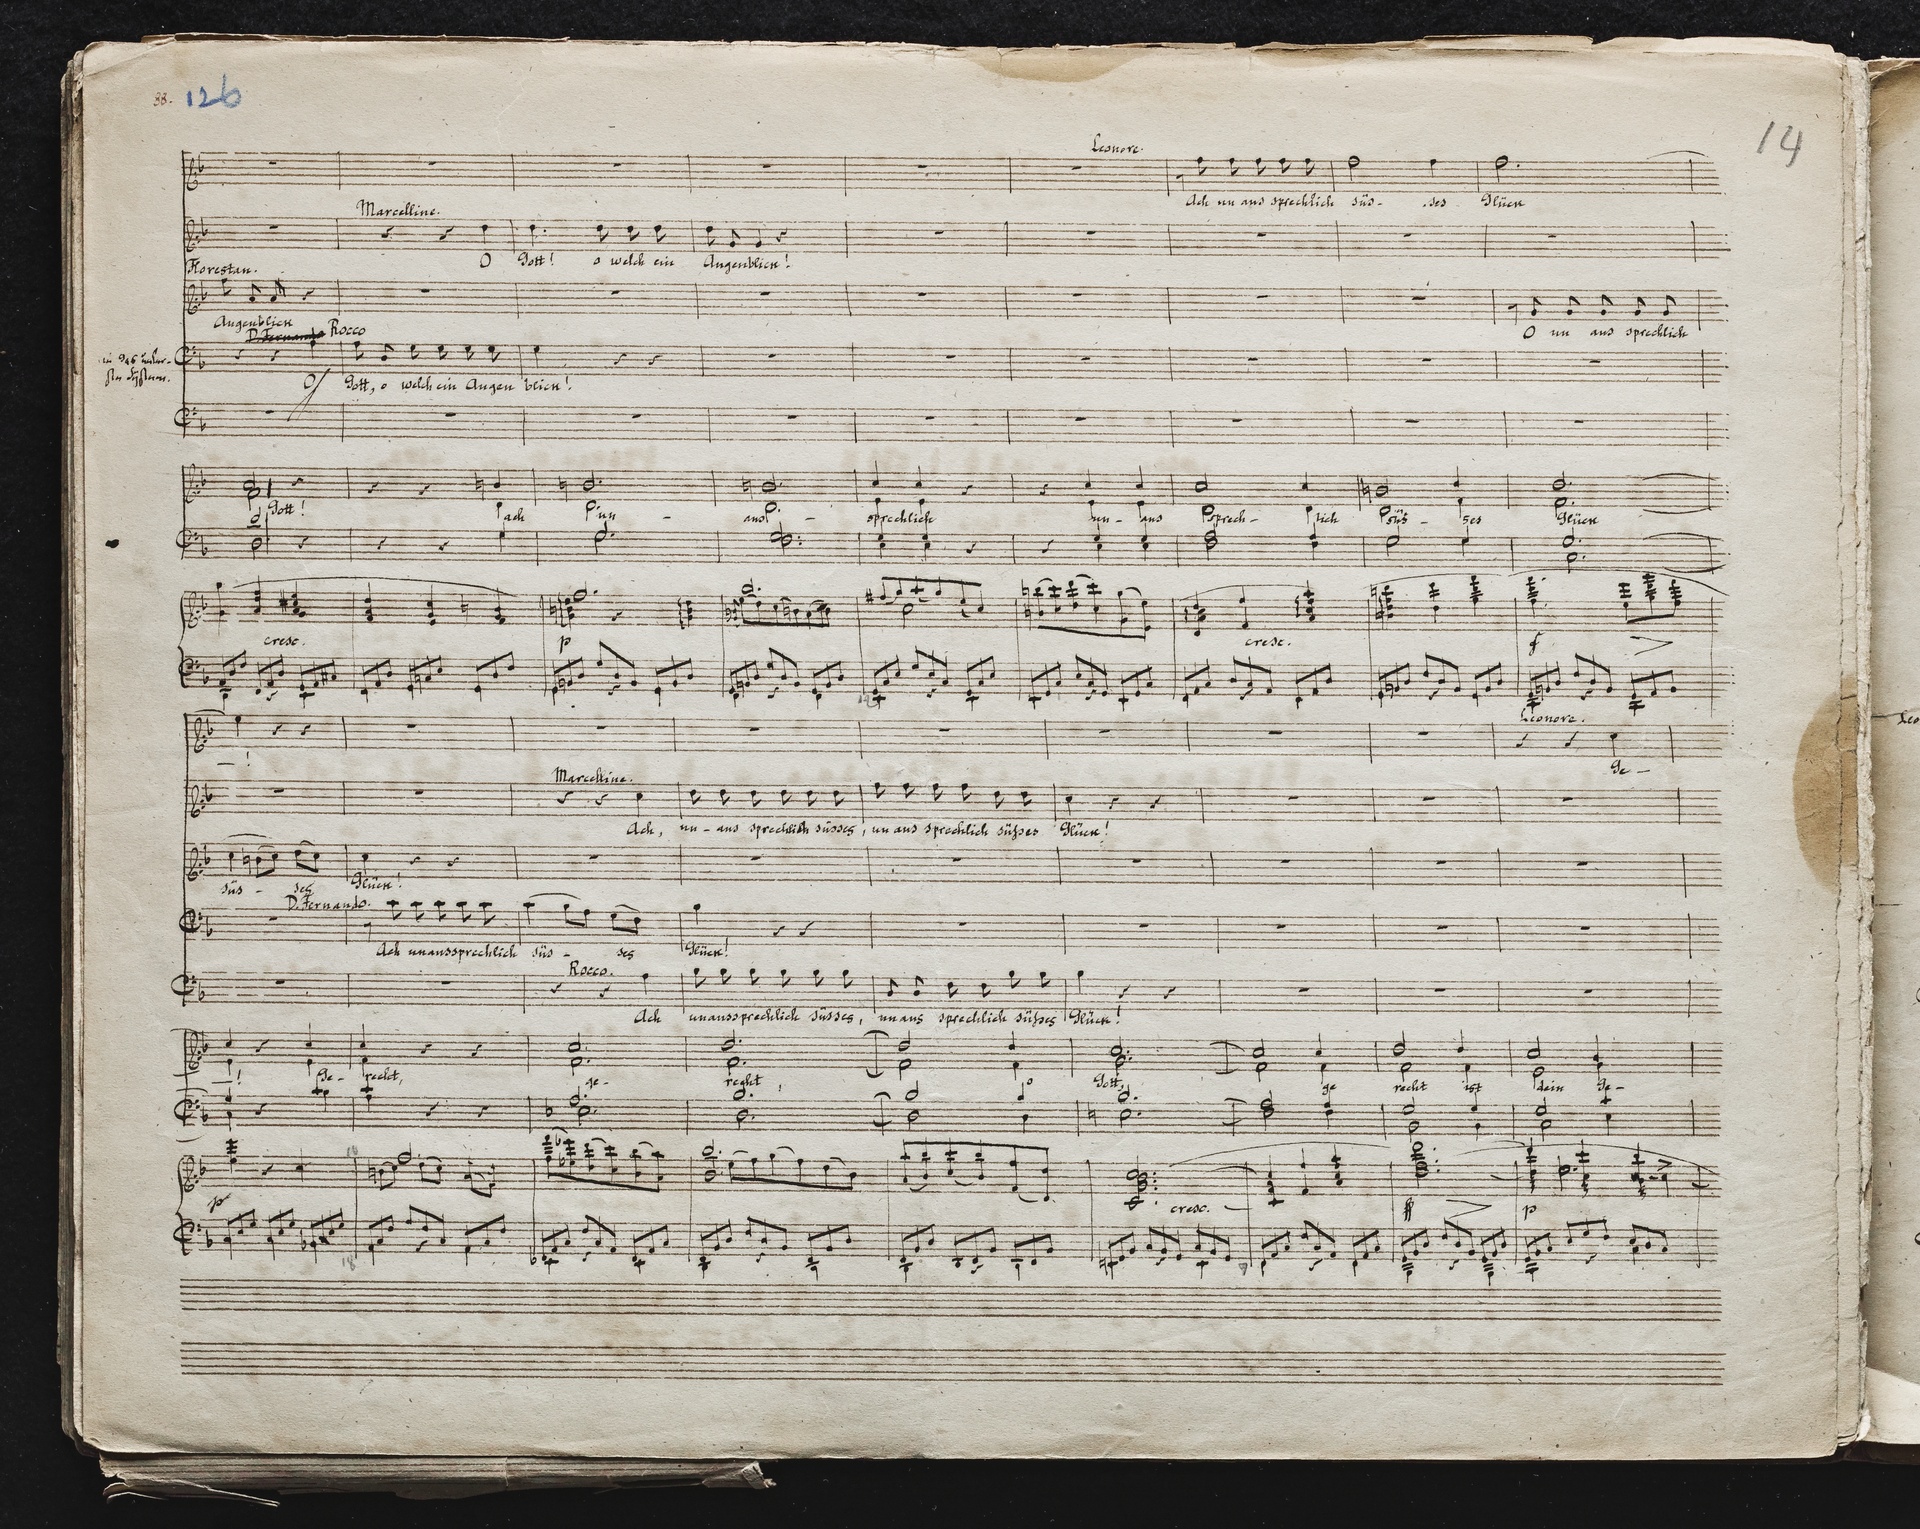 88. 126
14
Leonore.
Ach un aus sprechlich süs- ses Glück
Marcelline.
O Gott! o welch ein Augenblick!
Florestan.
Augenblick
O un aus sprechlich
D. Fernando Rocco
O Gott, o welch ein Augen blick!
Gott! ach un - aus - sprechlich un - aus sprech - lich süs - ses Glück
cresc. p cresc. f
Leonore.
- ! Ge -
Marcelline.
Ach, un - aus sprechlich süsses, un aus sprechlich süßes Glück!
süs - ses Glück!
D. Fernando.
Ach unaussprechlich süs - ses Glück!
Rocco.
Ach unaussprechlich süsses, unaus sprechlich süßes Glück!
- ! Ge - recht, ge - recht, o Gott, ge recht ist dein Ge -
p cresc. ff p